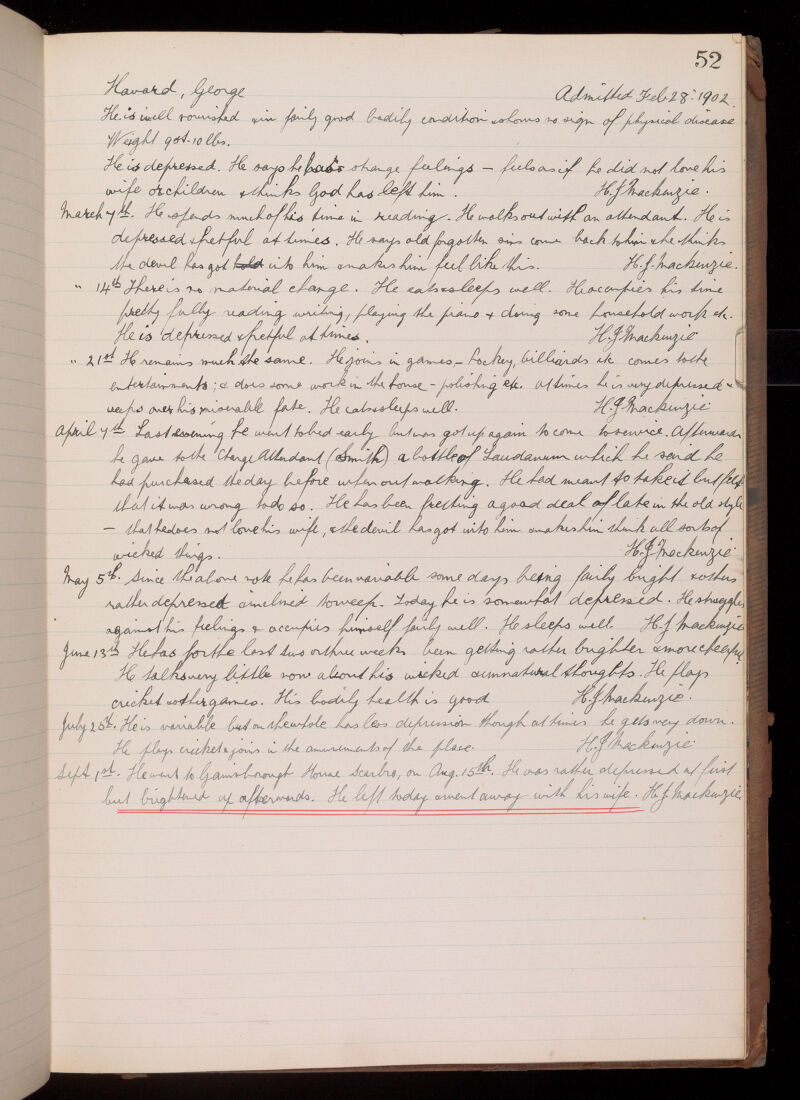 52
Havard, George Admitted Feb 28: 1902.
He is well nourished & in fairly good bodily condition & shows no sign of physical disease
Weight 9 st. 10 lbs.
He is depressed. He says he has strange feelings – feels as if he did not love his
wife or children & thinks God has left him. H.J. Mackenzie.
March 7th. He spends much of his time in reading. He walks out with an attendant. He is
depressed & fretful at times. He says old forgotten sins come back to him & he thinks
the devil has got hold into him & makes him feel like this. H.J. Mackenzie.
" 14th There is no material change. He eats & sleeps well. He occupies his time
pretty fully reading writing, playing the piano & doing some household work etc.
He is depressed & fretful at times. H.J. Mackenzie
" 21st He remains much the same. He joins in games – hockey, billiards etc comes to the
entertainments; & does some work in the house – polishing etc. at times he is very depressed &
weeps over his miserable fate. He eats & sleeps well. H.J. Mackenzie
April 7th Last evening he went to bed early but was got up again to come to service. Afterwards
he gave to the Charge Attendant (Smith) a bottle of Laudanum which he said he
had purchased the day before when out walking. He had meant to take it but felt
that it was wrong to do so. He has been fretting a good deal of late in the old style
– that he does not love his wife, & the devil has got into him & makes him think all sorts of
wicked things. H.J. Mackenzie
May 5th. Since the above note he has been variable some days being fairly bright & others
rather depressed & inclined to weep. Today he is somewhat depressed. He struggles
against his feelings & occupies himself fairly well. He sleeps well. H.J. Mackenzie
June 13th He has for the last two or three weeks been getting rather brighter & more cheerful.
He talks very little now about his wicked & unnatural thoughts. He plays
cricket & other games. His bodily health is good H.J. Mackenzie.
July 25th. He is variable but on the whole has less depression though at times he gets very down.
He plays cricket & joins in the amusements of the place. H.J. Mackenzie
Sept. 1st. He went to Gainsborough House Scarbro, on Aug. 15th. He was rather depressed at first
but brightened up afterwards. He left today & went away with his wife. H.J. Mackenzie